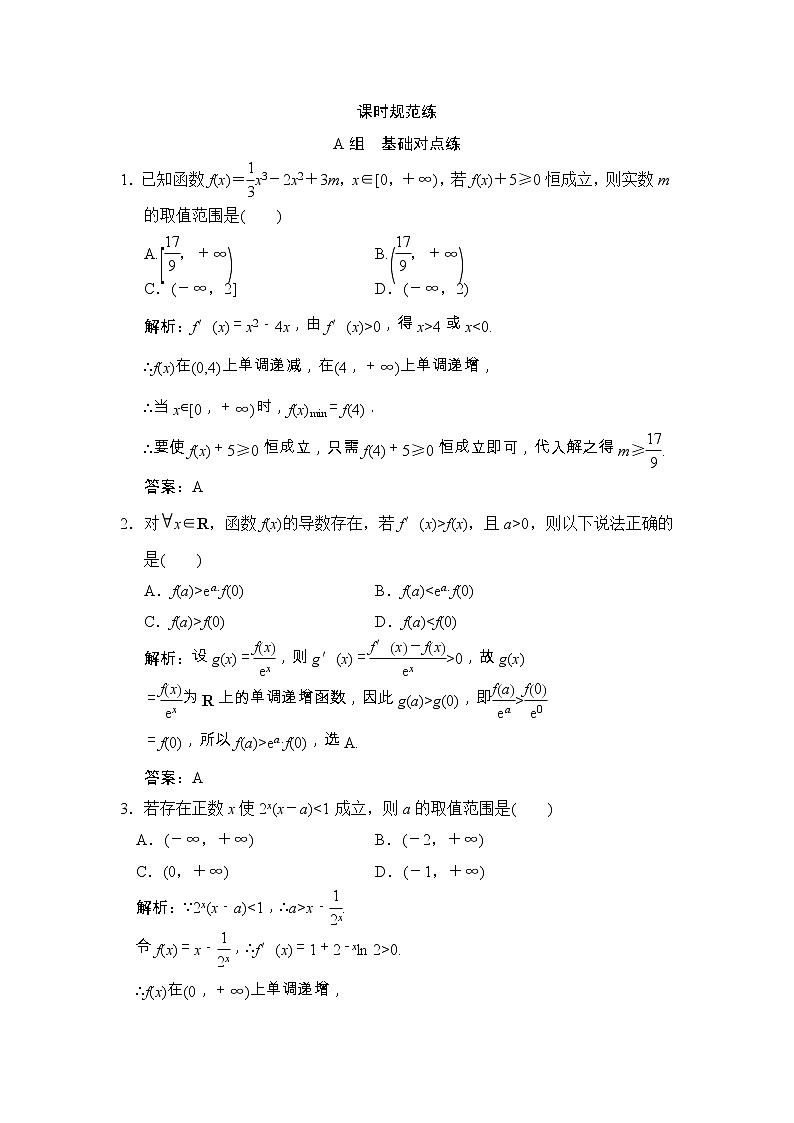 课时规范练
A组　基础对点练
1．已知函数f(x)＝\frac{1}{3}x³－2x²＋3m，x∈[0，＋∞)，若f(x)＋5≥0恒成立，则实数m
的取值范围是(　　)
A.[\frac{17}{9}，＋∞)　B.(\frac{17}{9}，＋∞)
C．(－∞，2]　D．(－∞，2)
解析：f′(x)＝x²－4x，由f′(x)>0，得x>4或x<0.
∴f(x)在(0,4)上单调递减，在(4，＋∞)上单调递增，
∴当x∈[0，＋∞)时，f(x)_{min}＝f(4)．
∴要使f(x)＋5≥0恒成立，只需f(4)＋5≥0恒成立即可，代入解之得m≥\frac{17}{9}.
答案：A
2．对∀x∈R，函数f(x)的导数存在，若f′(x)>f(x)，且a>0，则以下说法正确的
是(　　)
A．f(a)>e^a·f(0)　B．f(a)<e^a·f(0)
C．f(a)>f(0)　D．f(a)<f(0)
解析：设g(x)＝\frac{f(x)}{e^x}，则g′(x)＝\frac{f′(x)－f(x)}{e^x}>0，故g(x)
＝\frac{f(x)}{e^x}为R上的单调递增函数，因此g(a)>g(0)，即\frac{f(a)}{e^a}>\frac{f(0)}{e^0}
＝f(0)，所以f(a)>e^a·f(0)，选A.
答案：A
3．若存在正数x使2^x(x－a)<1成立，则a的取值范围是(　　)
A．(－∞，＋∞)　B．(－2，＋∞)
C．(0，＋∞)　D．(－1，＋∞)
解析：∵2^x(x－a)<1，∴a>x－\frac{1}{2^x}.
令f(x)＝x－\frac{1}{2^x}，∴f′(x)＝1＋2^{－x}ln 2>0.
∴f(x)在(0，＋∞)上单调递增，